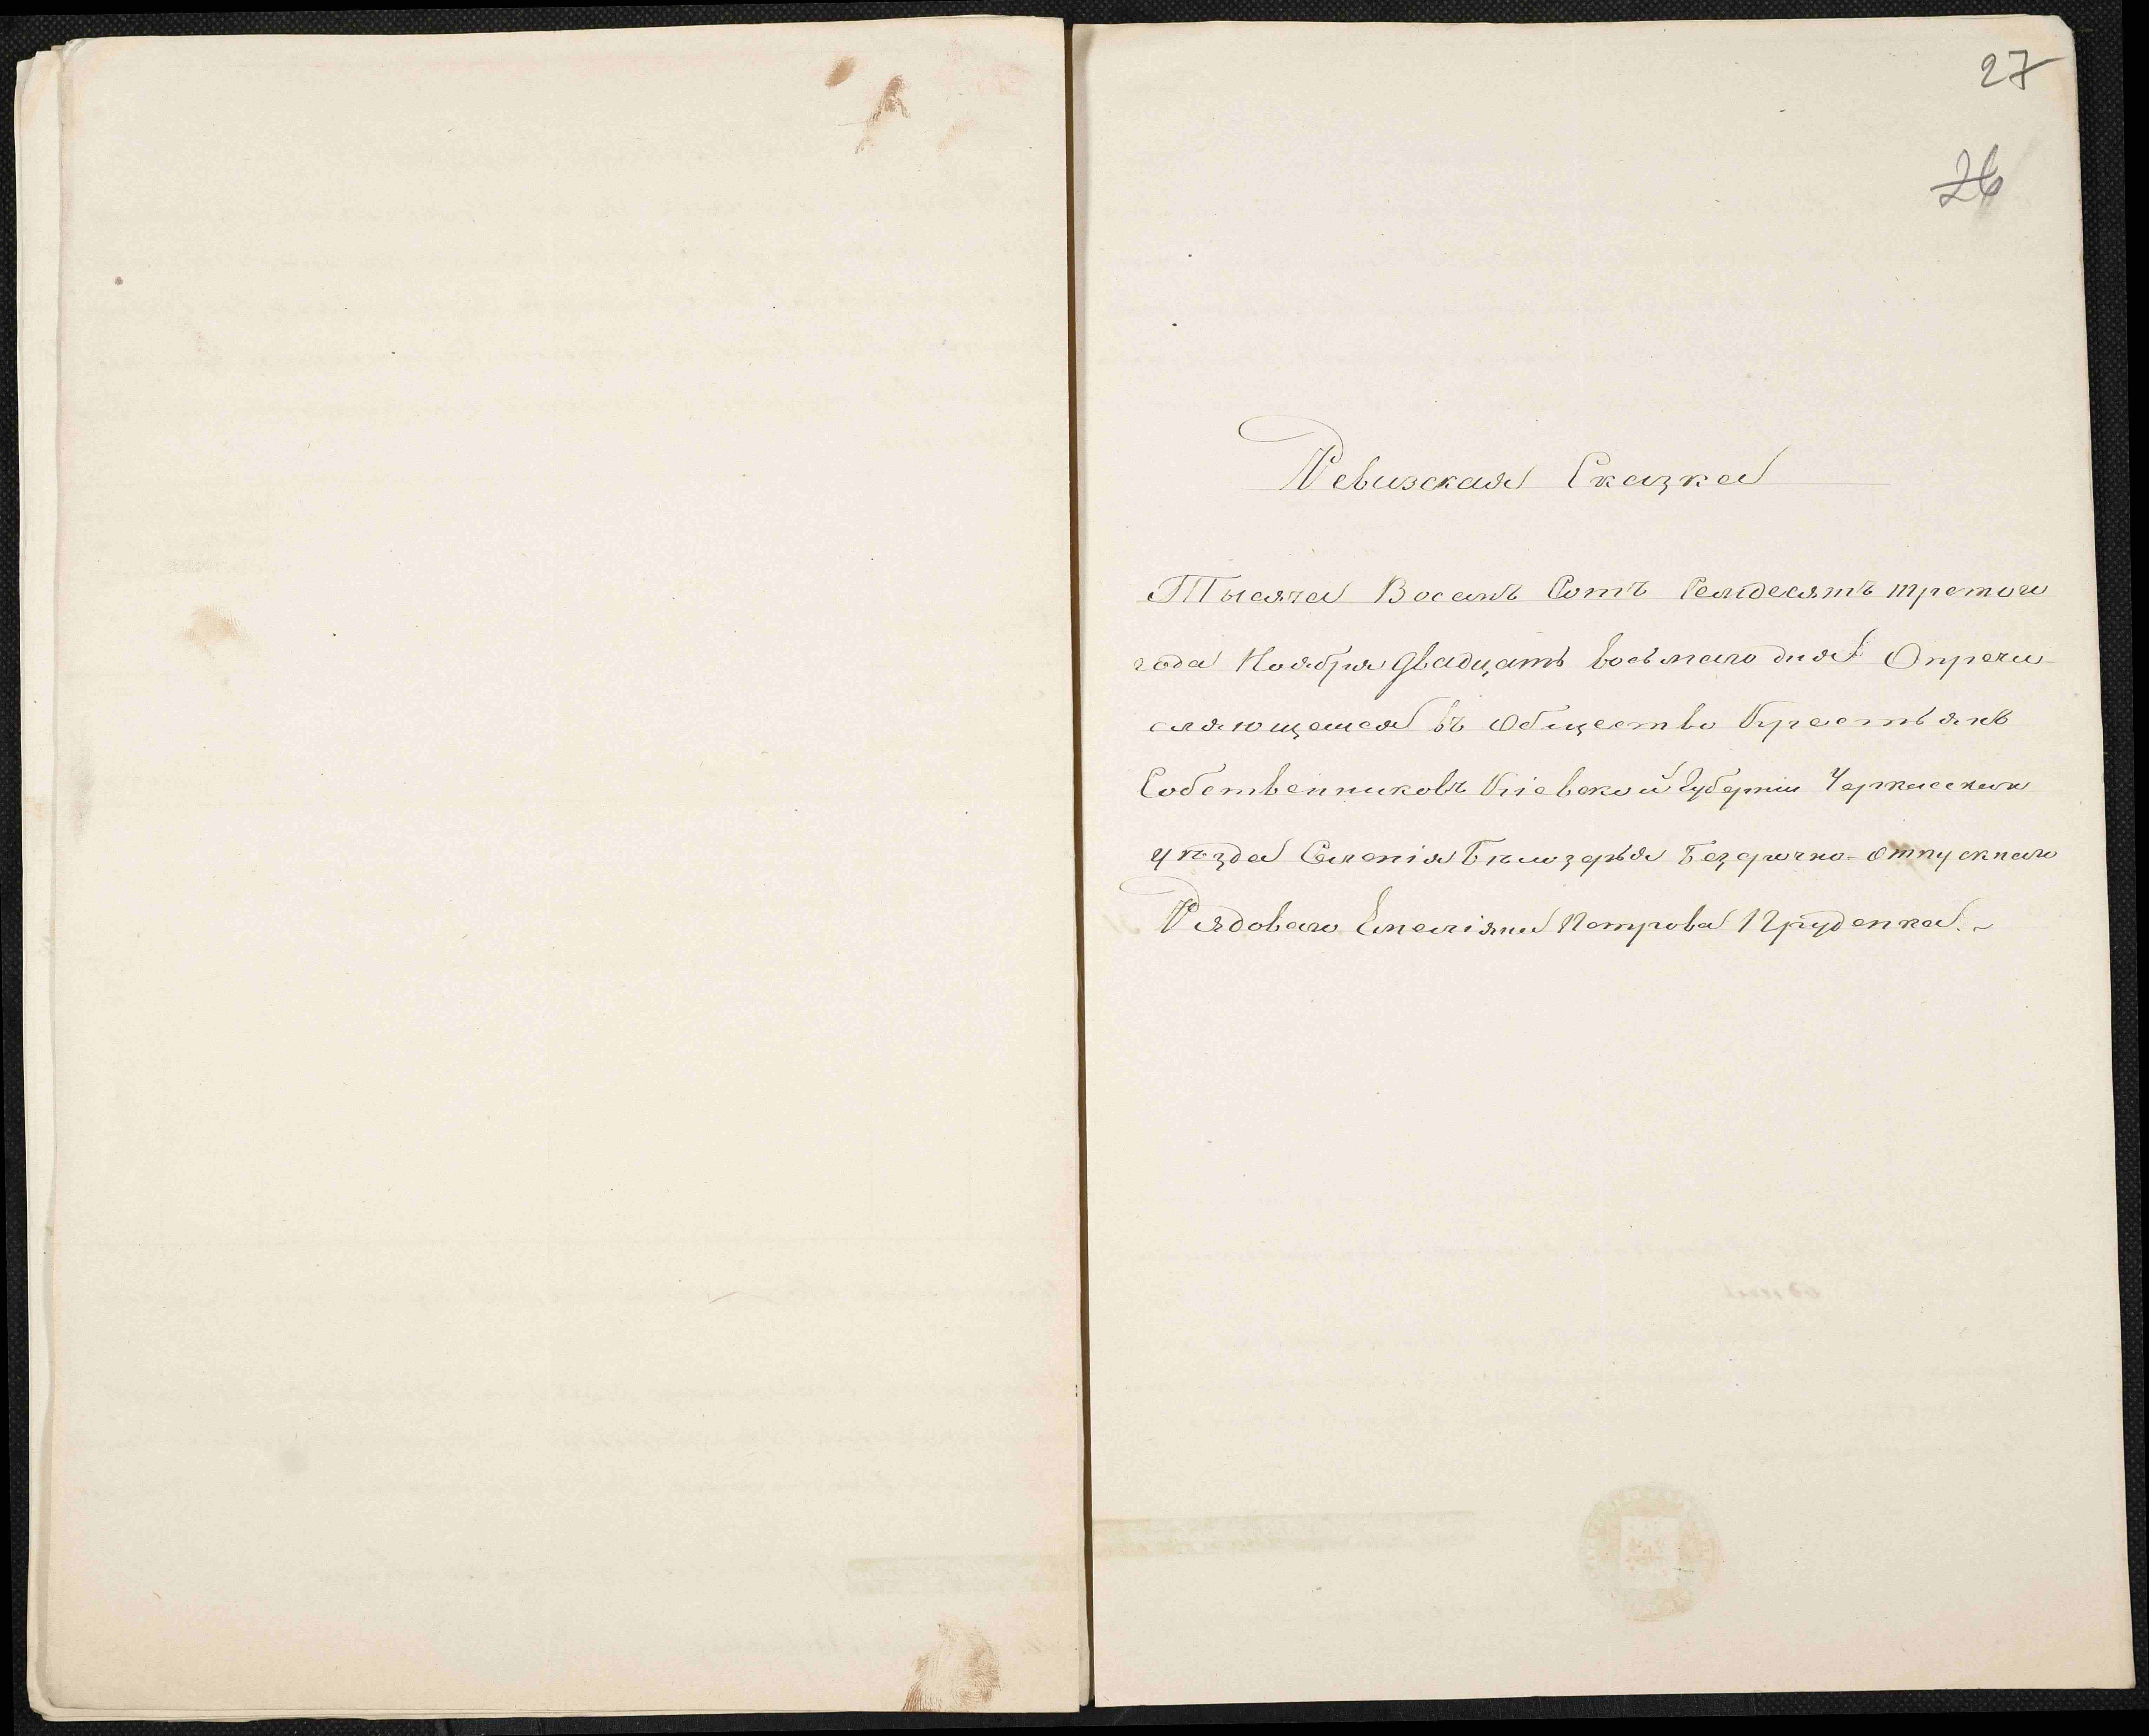 27
26
Ревизская Сказка
Тысяча Восемь Сотъ Семдесятъ третого
года Ноября двадцать восьмаго дня О пречи-
сляющемся въ общество Крестьянъ
Собственниковъ Кіевской Губерніи Черкасскаго
уѣзда Селенія Бѣлозерья Безсрочно-отпускнаго
Рядоваго Емеліяна Петрова Пруденка.